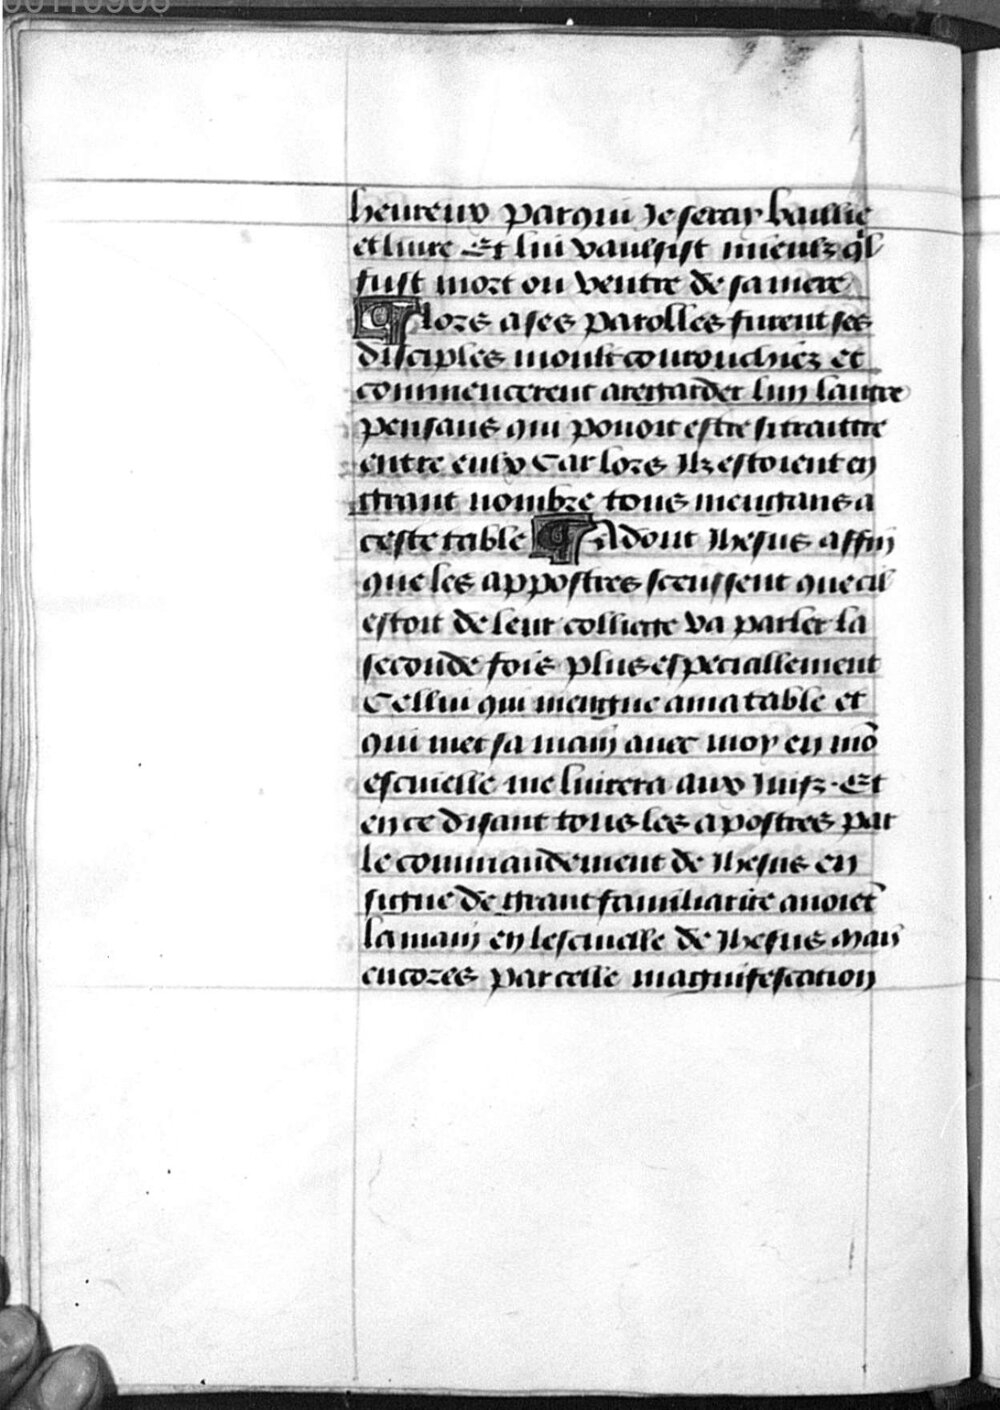 heureux par qui Je seray baillie
et liure Et lui vaulsist mieulz ql̃
fust mort ou ventre de sa mere
¶ Alors a ses parolles furent ses
disciples moult courouchiez et
commencerent a regarder lun lautre
pensans qui pouoit estre si traittre
entre eulx Car lors Ilz estoient en
grant nombre tous mengans a
ceste table ¶ Adont Ihesus affin
que les appostres sceussent que cil
estoit de leur colliege va parler la
seconde fois plus especiallement
Cellui qui mengue a ma table et
qui met sa main auec moy en mõ
escuielle me liurera aux Iuifz. Et
en ce disant tous les apostres par
le commandement de Ihesus en
signe de grant familiarite auoiẽt
la main en lescuielle de Ihesus Mais
encores par celle magnifescation